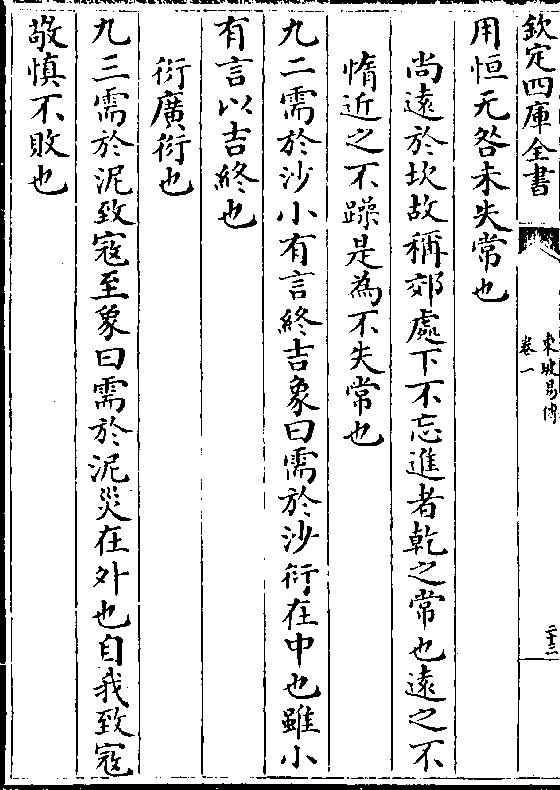 欽定四庫全書
東坡易傳
卷一
二十三
用恒无咎未失常也
尚遠於坎故稱郊處下不忘進者乾之常也遠之不
惰近之不躁是為不失常也
九二需於沙小有言終吉象曰需於沙衍在中也雖小
有言以吉終也
衍廣衍也
九三需於泥致寇至象曰需於泥災在外也自我致寇
敬慎不敗也